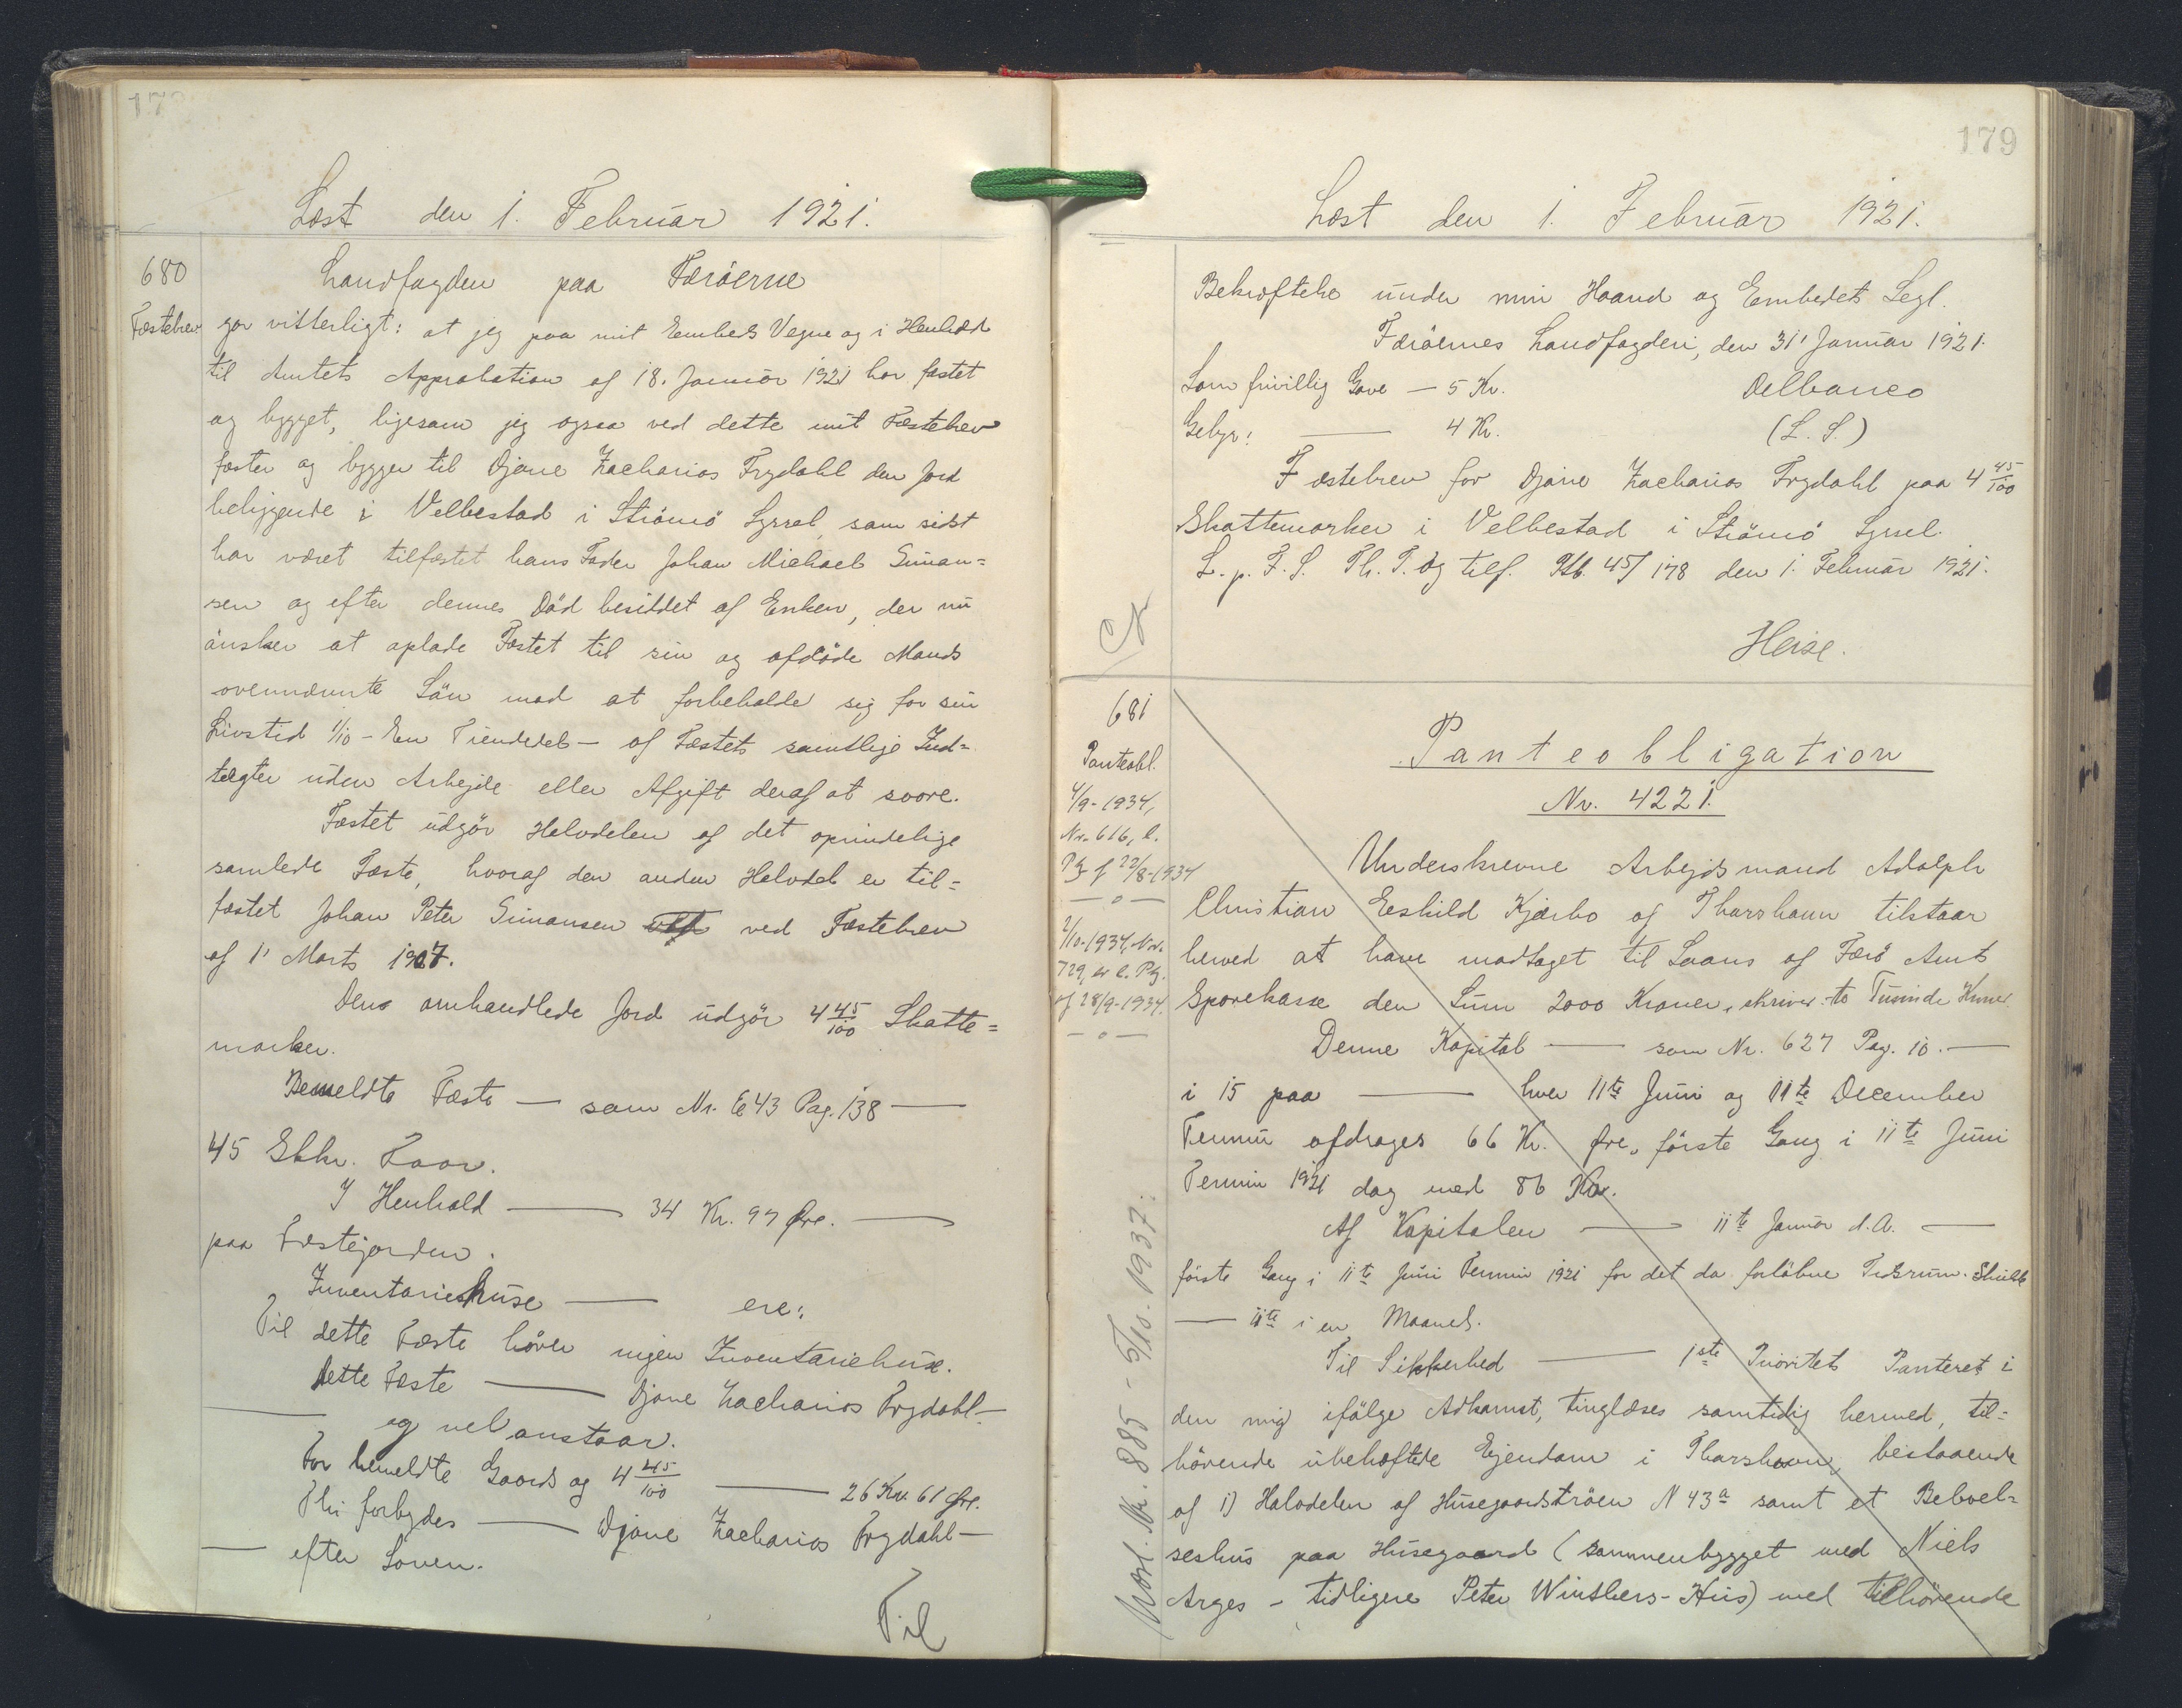 178
Læst den 1. Februar 1921.
680
Fæstebrev
Landfogden paa Færöerne
gör vitterligt: at jeg paa mit Embeds Vegne og i Henhold
til Amtets Approbation af 18. Januar 1921 har fæstet
og bygget, ligesom jeg ogsaa ved dette mit Fæstebrev
fæster og bygger til Djone Zacharias Trydahl den Jord
beliggende i Velbestad i Strömö Syssel, som sidst
har været tilfæstet hans Fader Johan Michael Siman=
sen og efter dennes Död besiddet af Enken, der nu
önsker at oplade Fæstet til sin og afdöde Mands
ovennævnte Sön mod at forbeholde sig for sin
Livstid 1/10 - En Tiendedel - af Fæstets samtlige Ind=
tægter uden Arbejde eller Afgift deraf at svare.
Fæstet udgör Halvdelen af det oprindelige
samlede Fæste, hvoraf den anden Halvdel er til=
fæstet Johan Peter Simonsen ved Fæstebrev
af 1' Marts 1907.
Den omhandlede Jord udgör 4 45/100 Skatte=
marker.
Bemeldte Fæste — som Nr. 643 Pag. 138 —
45 Stkr. Faar.
I Henhold — 34 Kr. 97 Øre. —
paa Fæstejorden.
Inventariehuse — ere:
Til dette Fæste hörer ingen Inventariehuse.
Dette Fæste — Djone Zacharias Trydahl —
— og vel anstaar.
For bemeldte Gaards og 4 45/100 — 26 Kr. 61 Øre.
Thi forbydes — Djone Zacharias Trydahl —
— efter Loven.
Til
179
Læst den 1. Februar 1921.
Bekræftelse under min Haand og Embedets Segl.
Færöernes Landfogderi, den 31' Januar 1921.
Som frivillig Gave — 5 Kr. Delbanco
Gebyr: — 4 Kr. (L. S.)
Fæstebrev for Djone Zacharias Trydahl paa 4 45/100
Skattemarker i Velbestad i Strömö Syssel.
L. p. F. S. Th. T. og tilf. Ptb. 45/178 den 1. Februar 1921.
Heise.
681
Panteobl.
4/9-1934,
Nr. 616, l.
Pg. af 22/8-1934
— o —
2/10-1934, Nr.
729, er l. Pg.
af 28/9-1934.
— o —
Mort. Nr. 885 - 5/10. 1937.
Panteobligation
Nr. 4221.
Underskrevne Arbejdsmand Adolph
Christian Eskild Kjærbo af Thorshavn tilstaar
herved at have modtaget til Laans af Færö Amts
Sparekasse den Sum 2000 Kroner, skriver to Tusinde Kroner.
Denne Kapital — som Nr. 627 Pag. 10. —
i 15 paa — hver 11te Juni og 11te December
Termin afdrages 66 Kr. Øre, förste Gang i 11te Juni
Termin 1921 dog med 86 Kr.
Af Kapitalen — 11te Januar d.A. —
förste Gang i 11te Juni Termin 1921 for det da forlöbne Tidsrum. Skulde
— 11te i en Maaned.
Til Sikkerhed — 1ste Prioritets Panteret i
den mig ifölge Adkomst, tinglæses samtidig hermed, til=
hörende ubehæftede Ejendom i Thorshavn, bestaaende
af 1) Halvdelen af Husegaardströen N 43a samt et Beboel=
seshus paa Husegaard (sammenbygget med Niels
Arges - tidligere Peter Winthers-Hus) med tilhörende